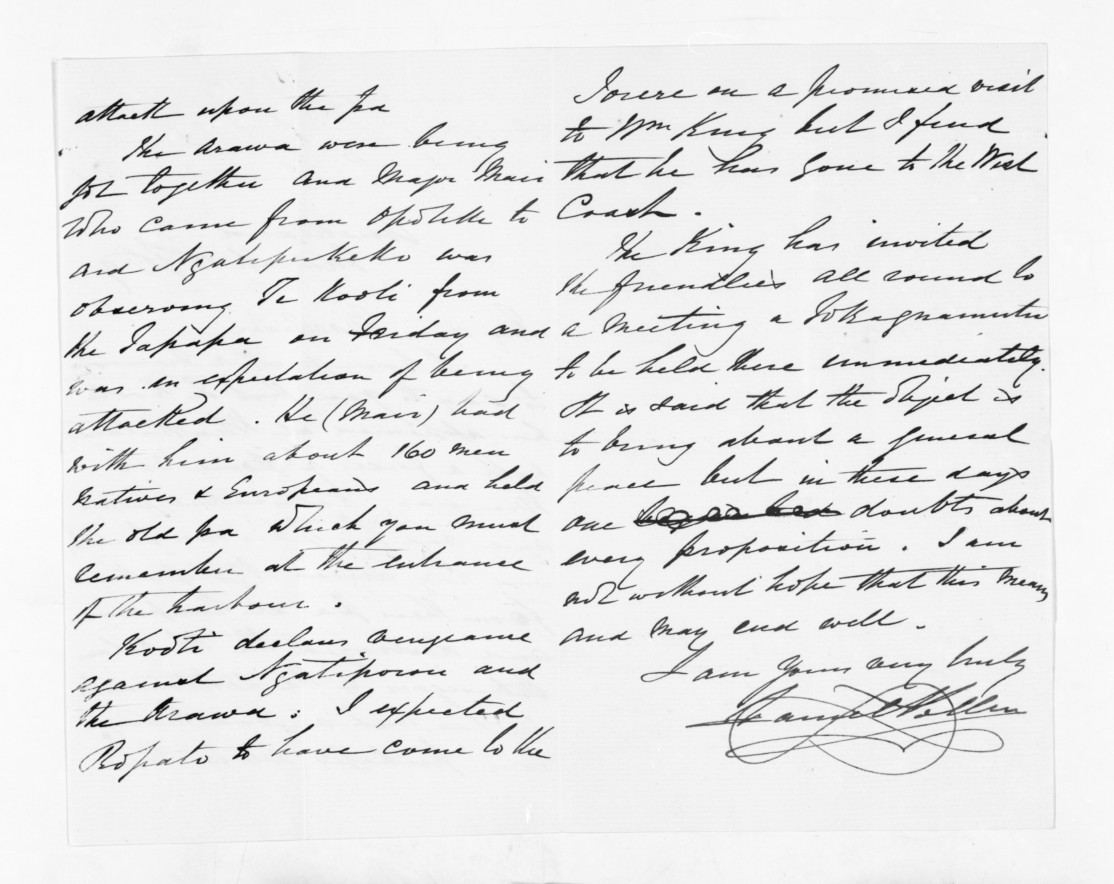 attack upon the Pa
The Arawa were being
got together and Major Mair
who came from Opotiki to
aid Ngatipukeko was
observing Te Kooti from
the Papapa on Friday and
was in expectation of being
attacked. He (Mair) had
with him about 160 men
Natives & Europeans and held
the old pa which you must
remember at the entrance
of the harbour.
Kooti declares vengeance
against Ngatiporou and
the Arawa: I expected
Ropato to have come to the
on a promised visit
to Wm King but I find
that he has gone to the West
Coast.
The King has invited
the friendlies all round to
a meeting a Tokagnamutu
to be held there immediately.
It is said that the object is
to bring about a general
peace but in these days
one doubts about
every proposition. I am
not without hope that this means
and may end well.
I am Yours very truly
Daniel Pollen